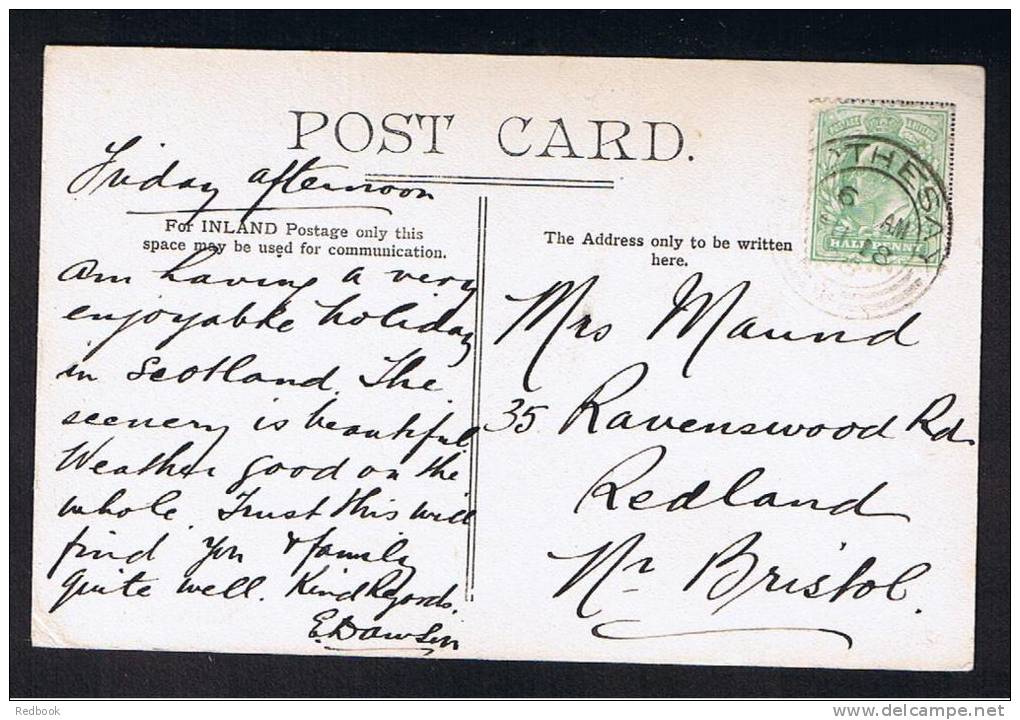 POST CARD.
Friday afternoon
For INLAND Postage only this
space may be used for communication.
am having a very
enjoyable holiday
in Scotland. The
scenery is beautiful
Weather good on the
whole. Trust this will
find you & family
quite well. Kind Regards.
E. Dawson
The Address only to be written
here.
Mrs Maund
35 Ravenswood Rd.
Redland
Nr Bristol.
POSTAGE
HALF PENNY
OTHESAY
6 AM
Redbook
www.delcampe.net